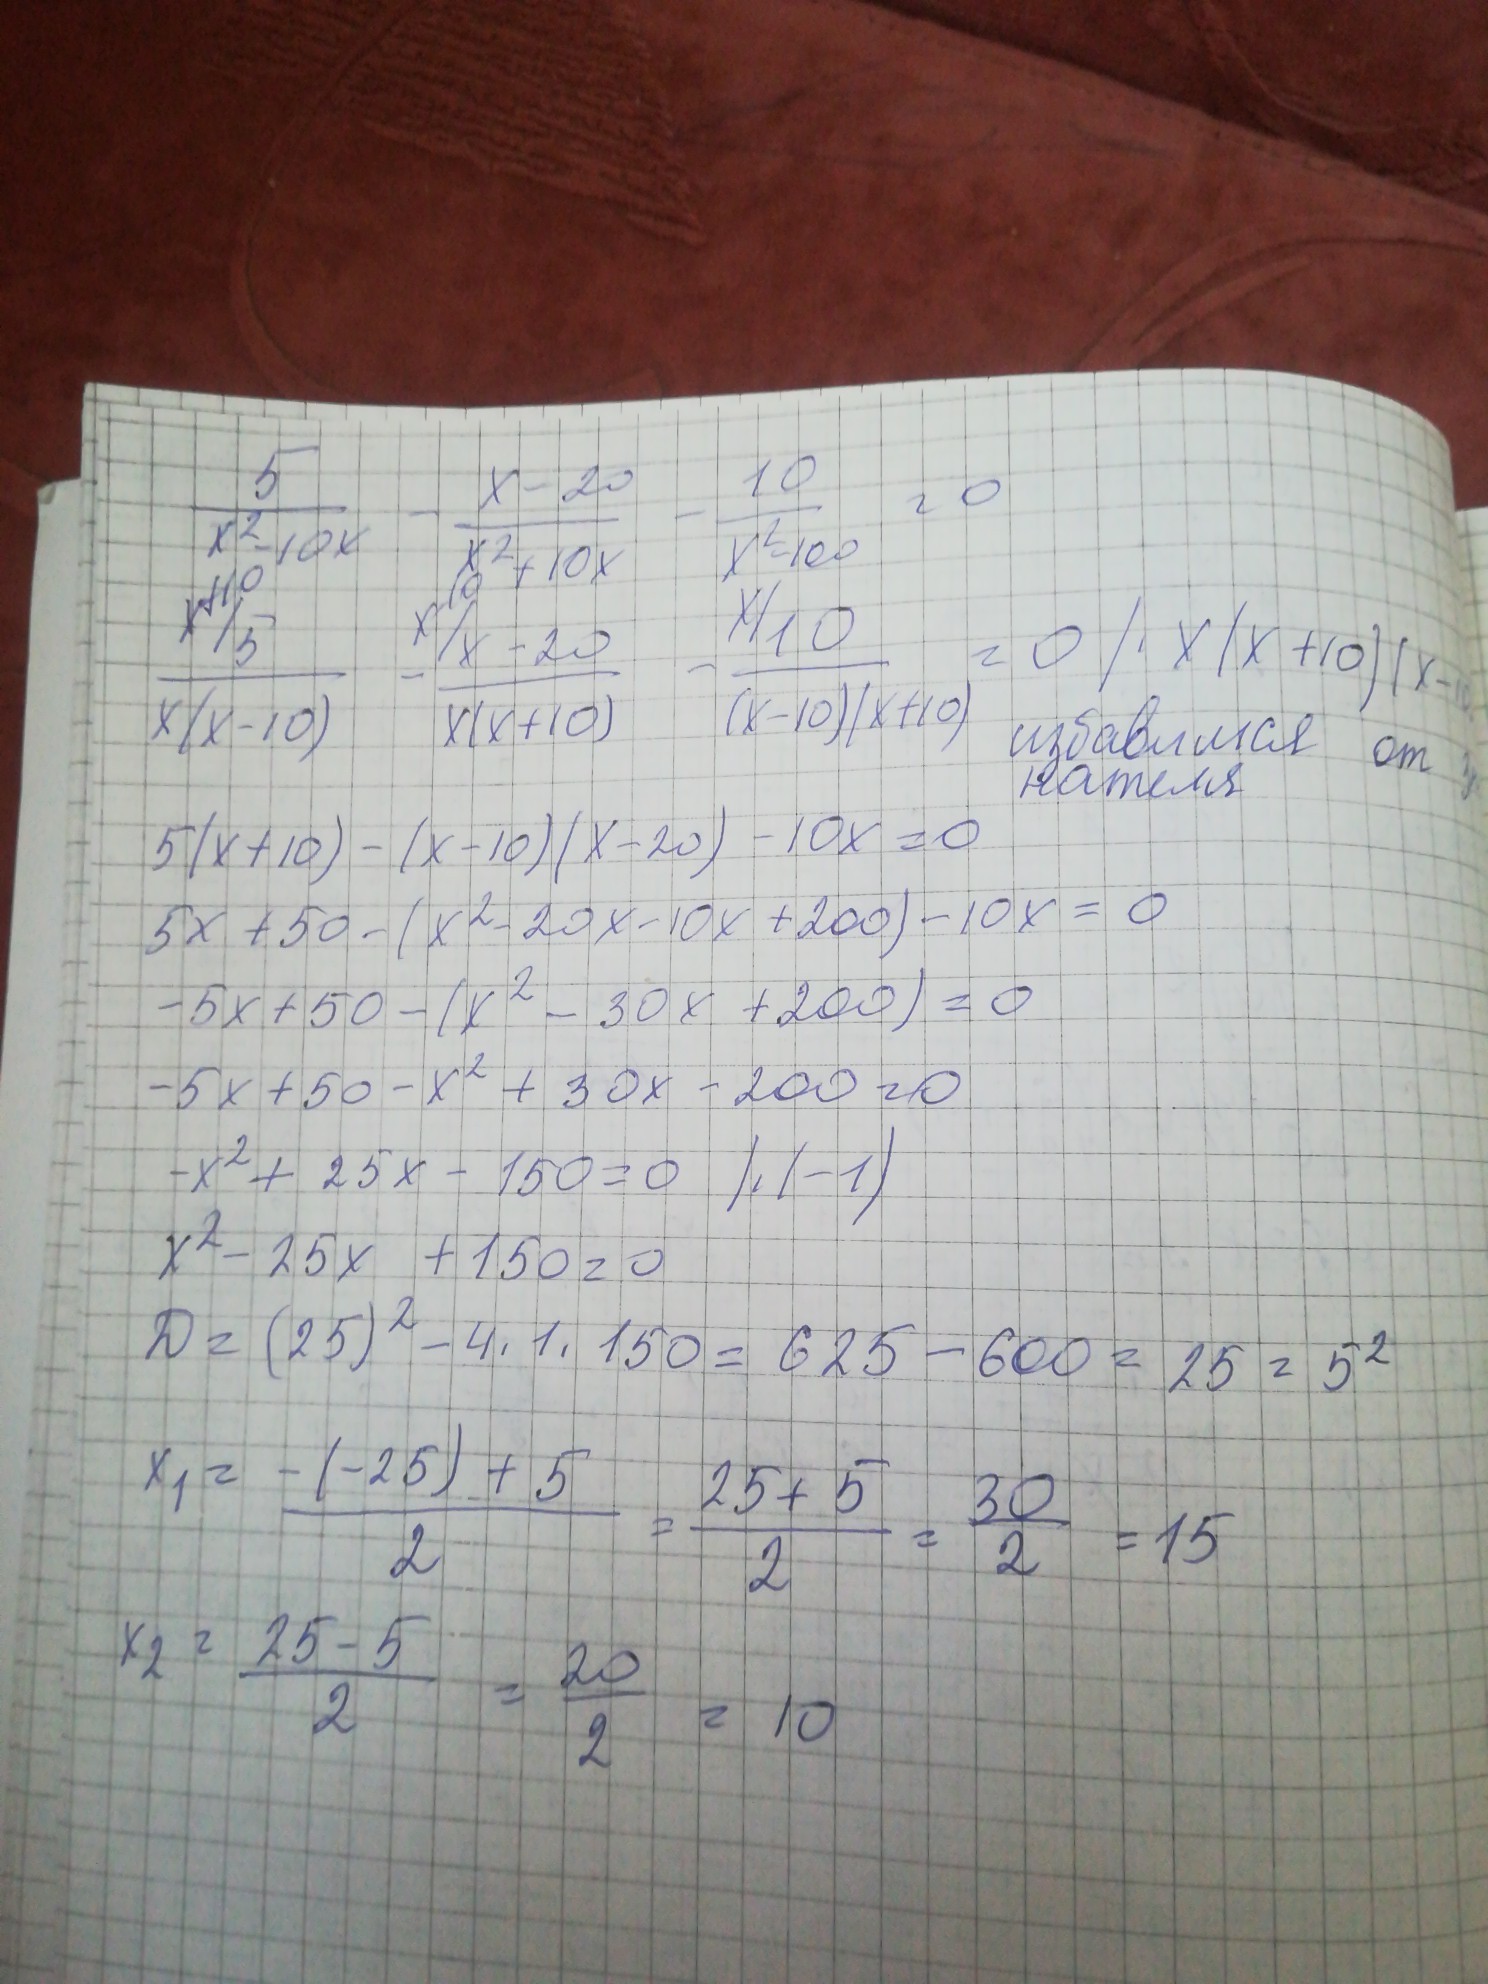 5/(x²-10x) - (x-20)/(x²+10x) - 10/(x²-100) = 0
x+10/5/(x(x-10)) - x-10/(x-20)/(x(x+10)) - x/10/((x-10)(x+10)) = 0 /· x(x+10)(x-10)
избавимся от
нателя
5(x+10) - (x-10)(x-20) - 10x = 0
5x + 50 - (x² - 20x - 10x + 200) - 10x = 0
-5x + 50 - (x² - 30x + 200) = 0
-5x + 50 - x² + 30x - 200 = 0
-x² + 25x - 150 = 0 /·(-1)
x² - 25x + 150 = 0
D = (25)² - 4·1·150 = 625 - 600 = 25 = 5²
x₁ = (-(-25) + 5)/2 = (25 + 5)/2 = 30/2 = 15
x₂ = (25 - 5)/2 = 20/2 = 10